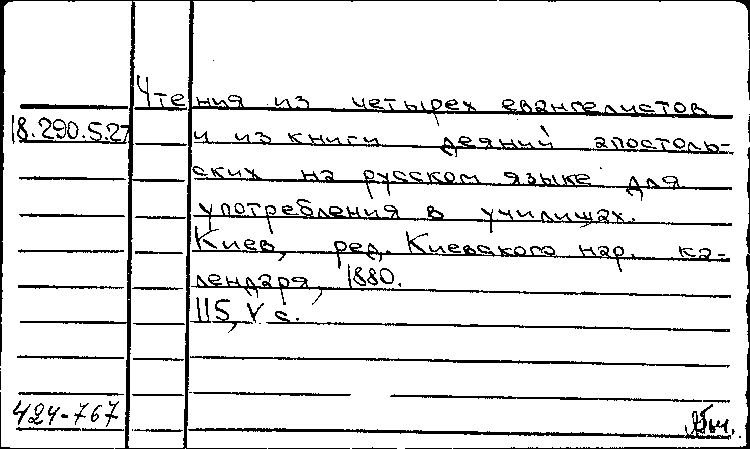 Чтения из четырех евангелистов
18.290.5.27
и из книги деяний апостоль-
ских на русском языке для
употребления в училищах.
Киев, ред. Киевского нар. ка-
лендаря, 1880.
115, V с.
424-767